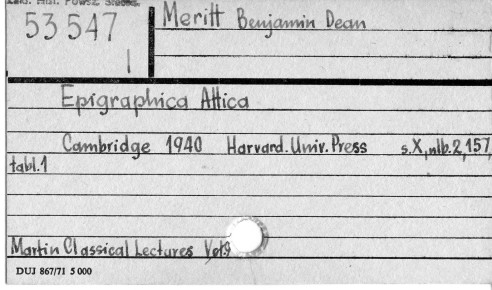 53547
I
Meritt Benjamin Dean
Epigraphica Attica
Cambridge 1940 Harvard. Univ. Press s.X, nlb.2, 157,
tabl.1
Martin Classical Lectures Vol.9
DUJ 867/71 5 000